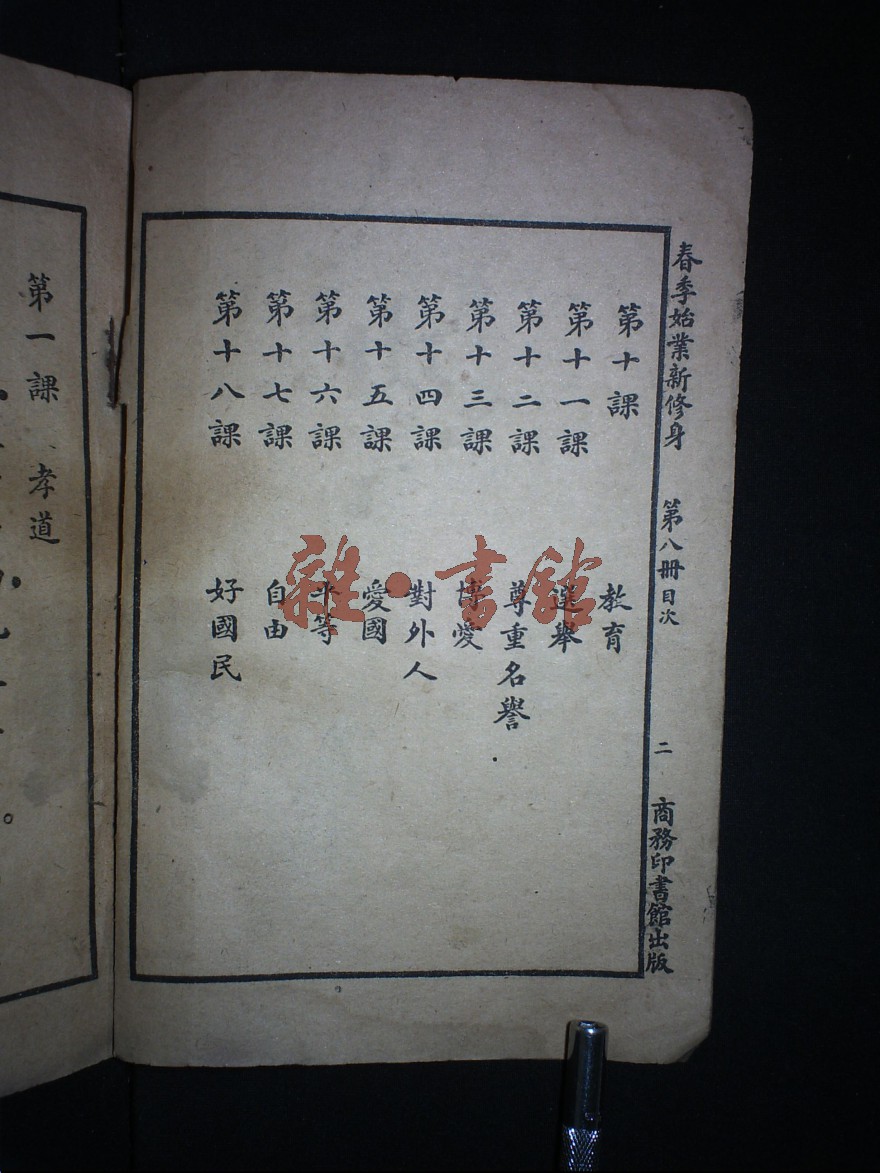 春季始業新修身 第八冊目次 二 商務印書館出版
第十課 教育
第十一課 選舉
第十二課 尊重名譽
第十三課 博愛
第十四課 對外人
第十五課 愛國
第十六課 平等
第十七課 自由
第十八課 好國民
第一課 孝道
雜·書館